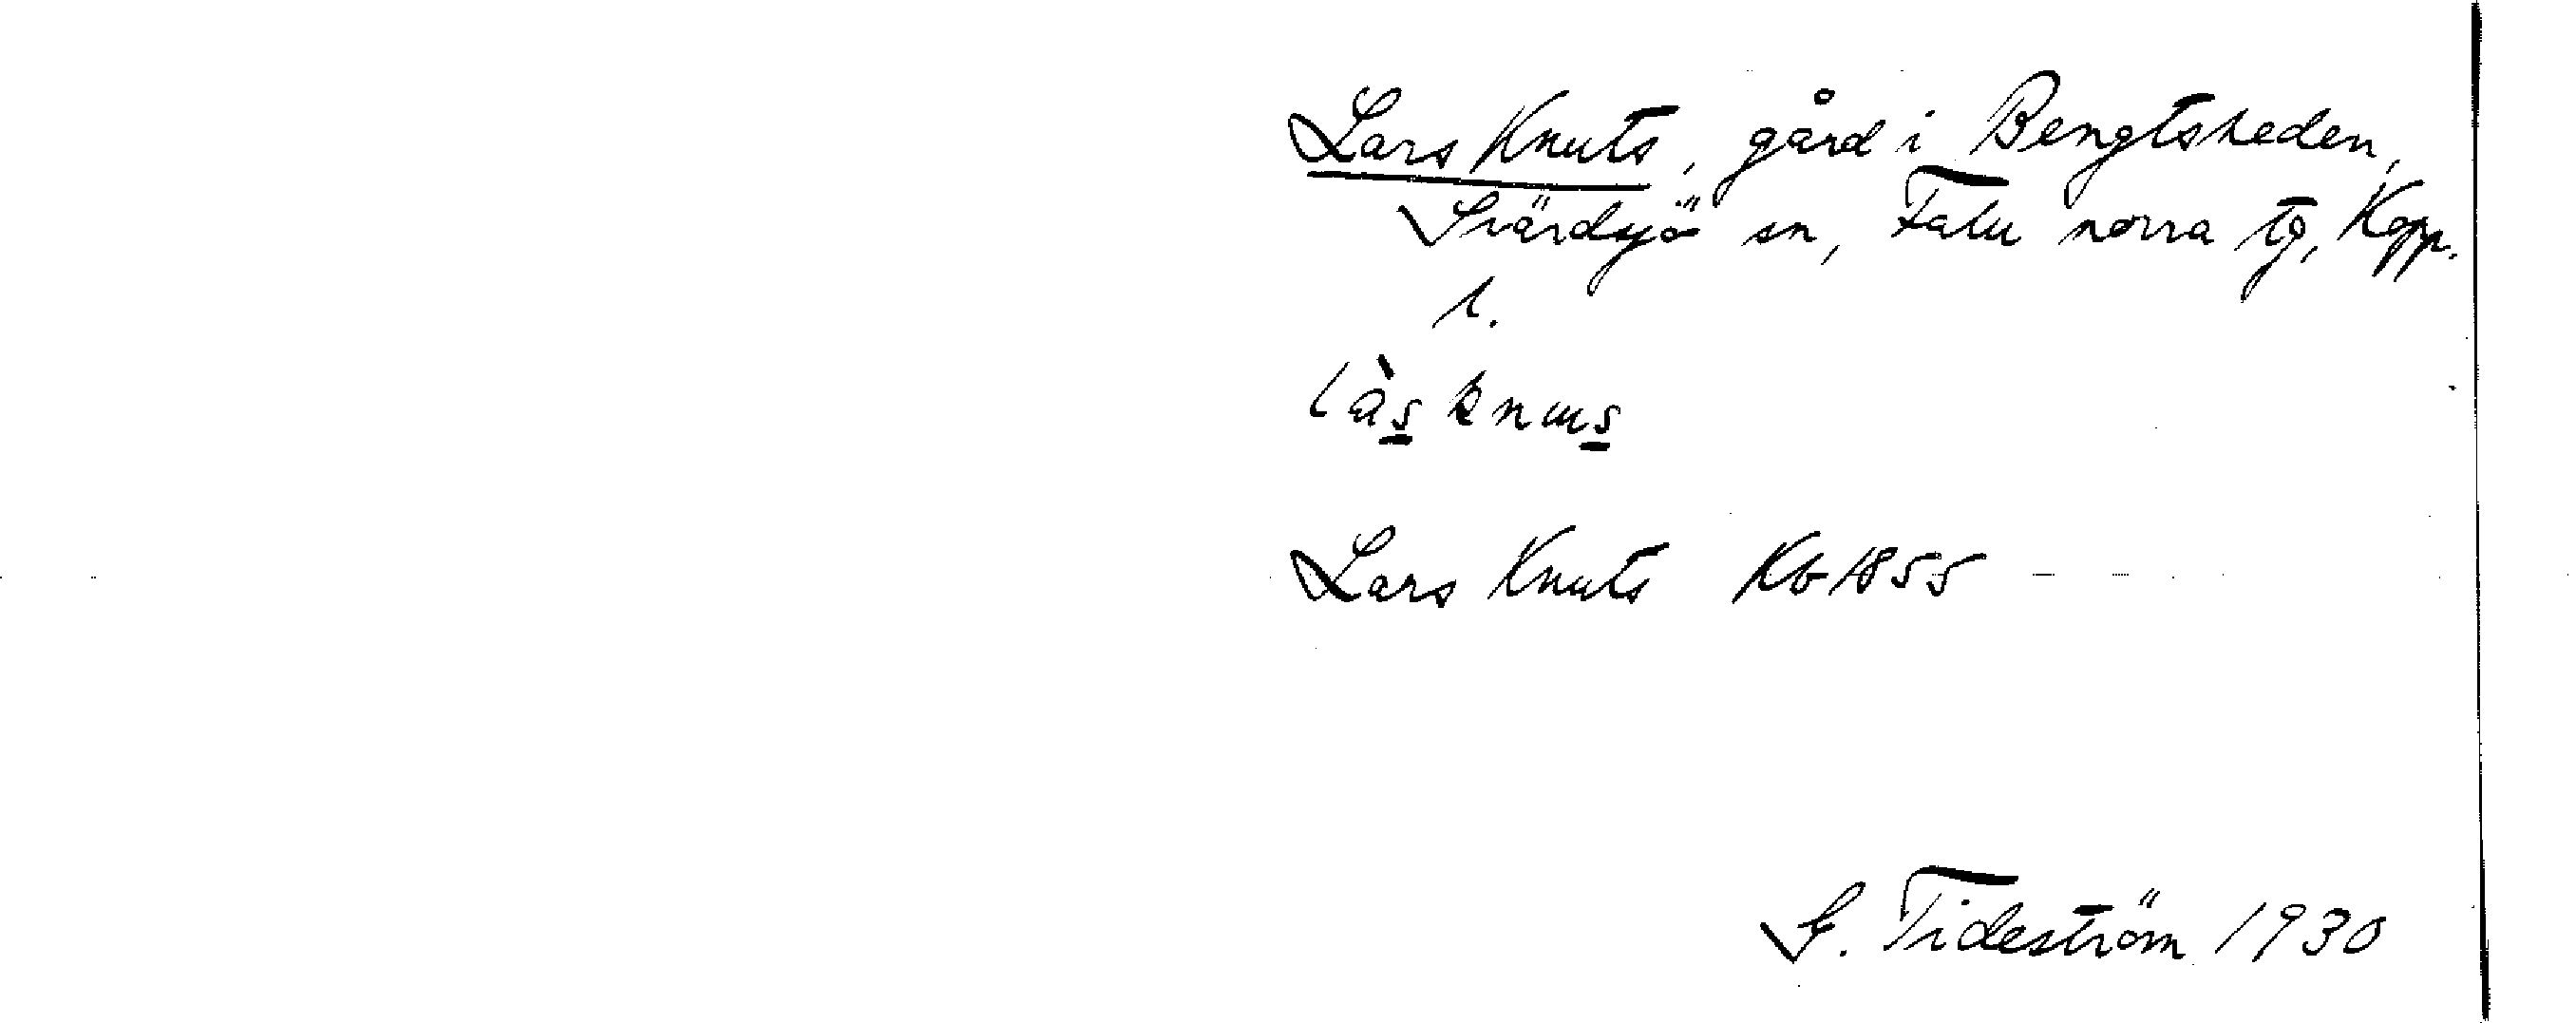 Lars Knuts, gård i Bengtsheden,
Svärdsjö sn, Falu norra tg, Kopp.
l.
làs knus
Lars Knuts Kb 1855
G. Tideström 1930